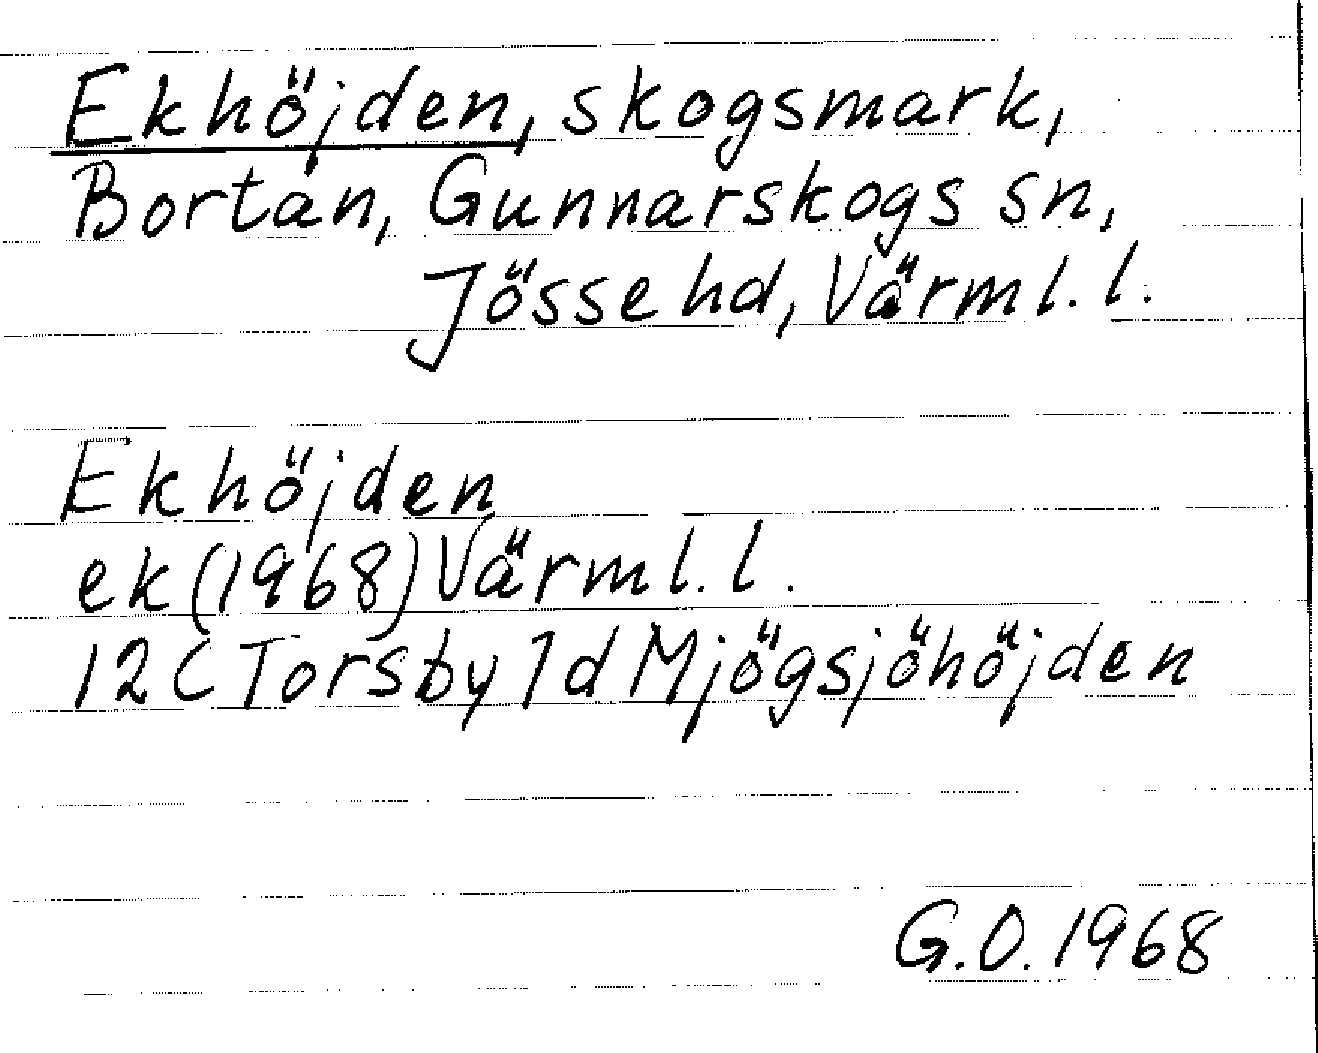 Ekhöjden, skogsmark,
Bortan, Gunnarskogs sn,
Jösse hd, Värml. l.
Ekhöjden
ek (1968) Värml. l.
12 C Torsby 1 d Mjögsjöhöjden
G.O. 1968